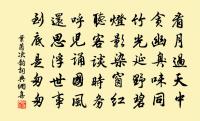 看月過天中
貪幽興味同
竹光延野
燈影染窗紅
聽客談時務
呼兒誦國風
還思浮世事
到底匆匆
葉茵次韻詞典網